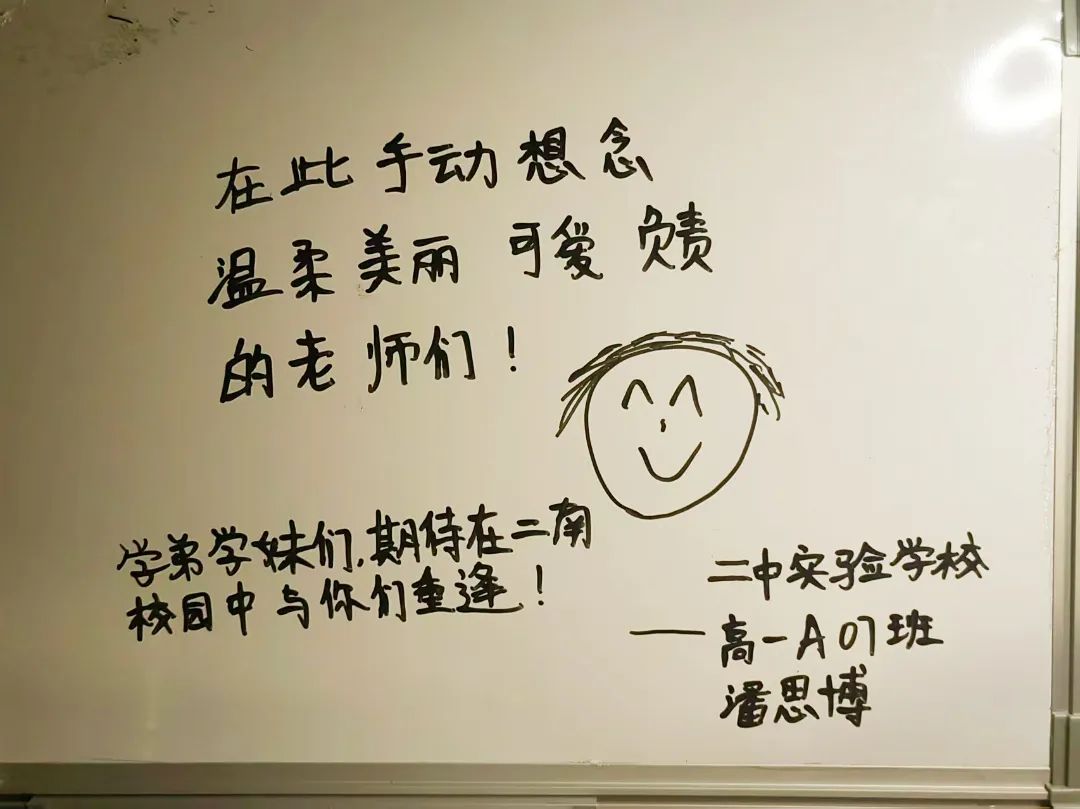 在此手动想念
温柔美丽可爱负责
的老师们！
学弟学妹们,期待在二南
校园中与你们重逢！
二中实验学校
——高一A07班
潘思博